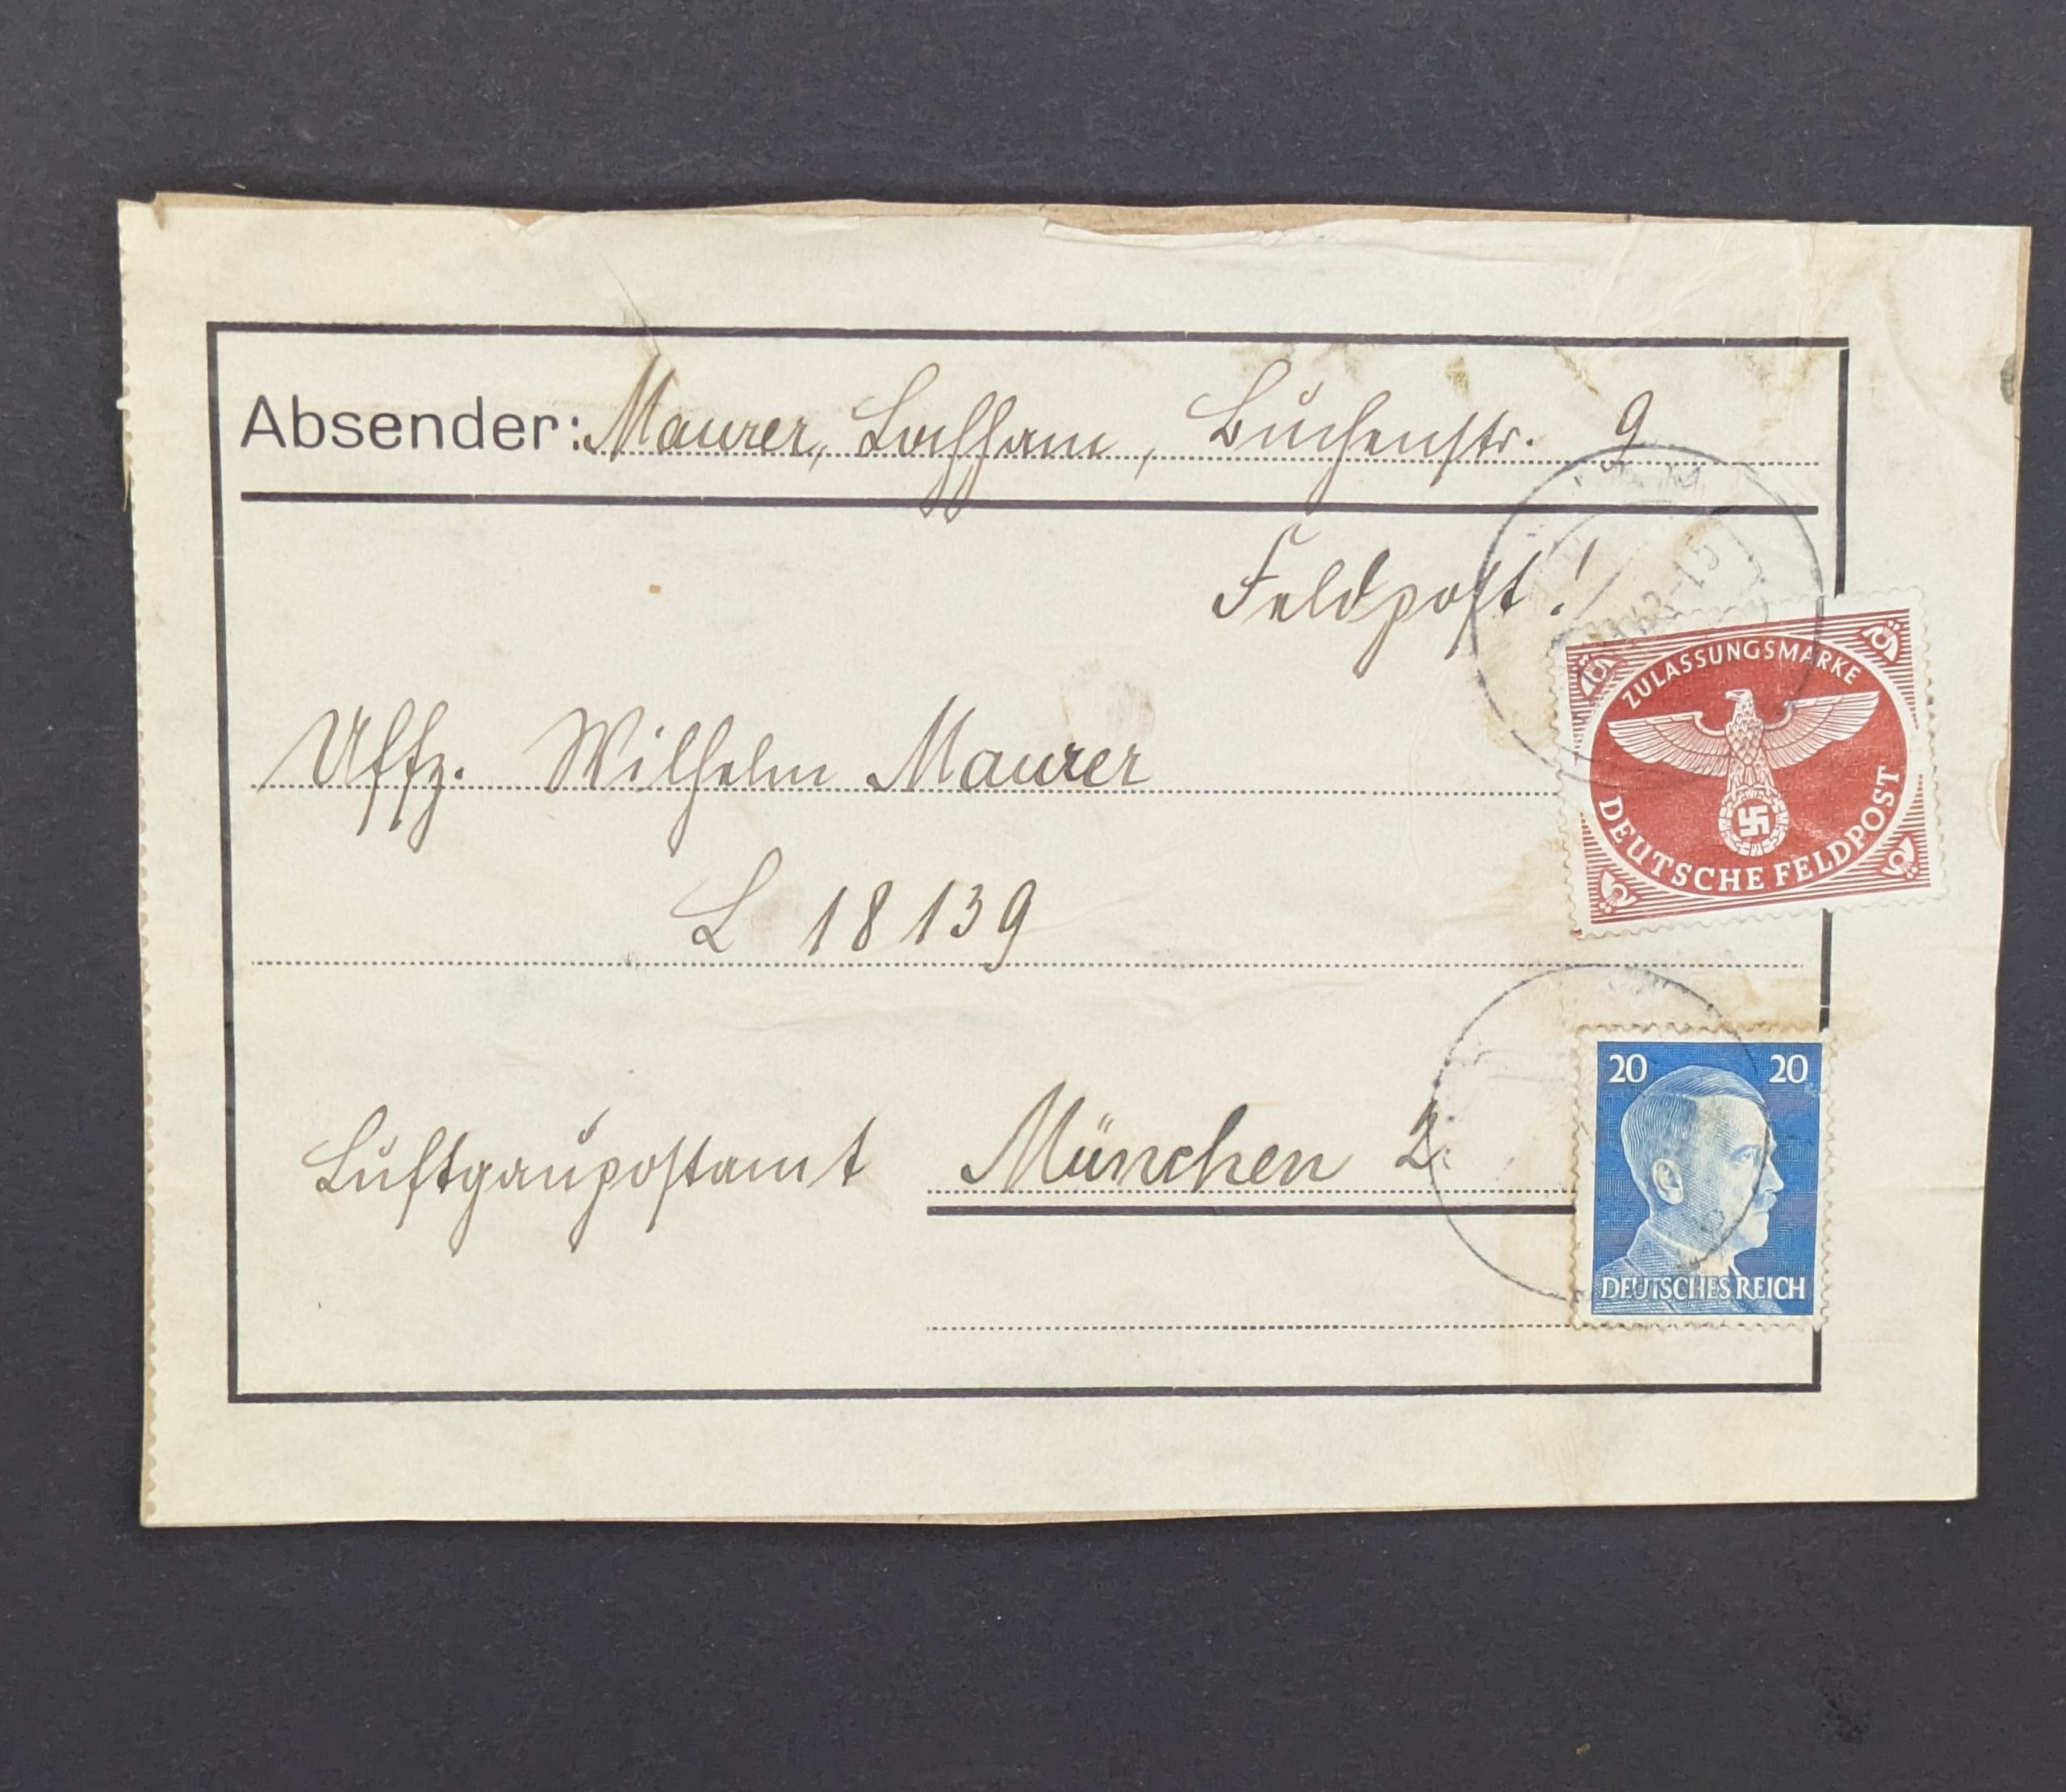 Absender: Maurer, Lochham, Buchenstr. 9
Feldpost!
ZULASSUNGSMARKE
DEUTSCHE FELDPOST
Uffz. Wilhelm Maurer
L 18139
Luftgaupostamt München 2
20 20
DEUTSCHES REICH